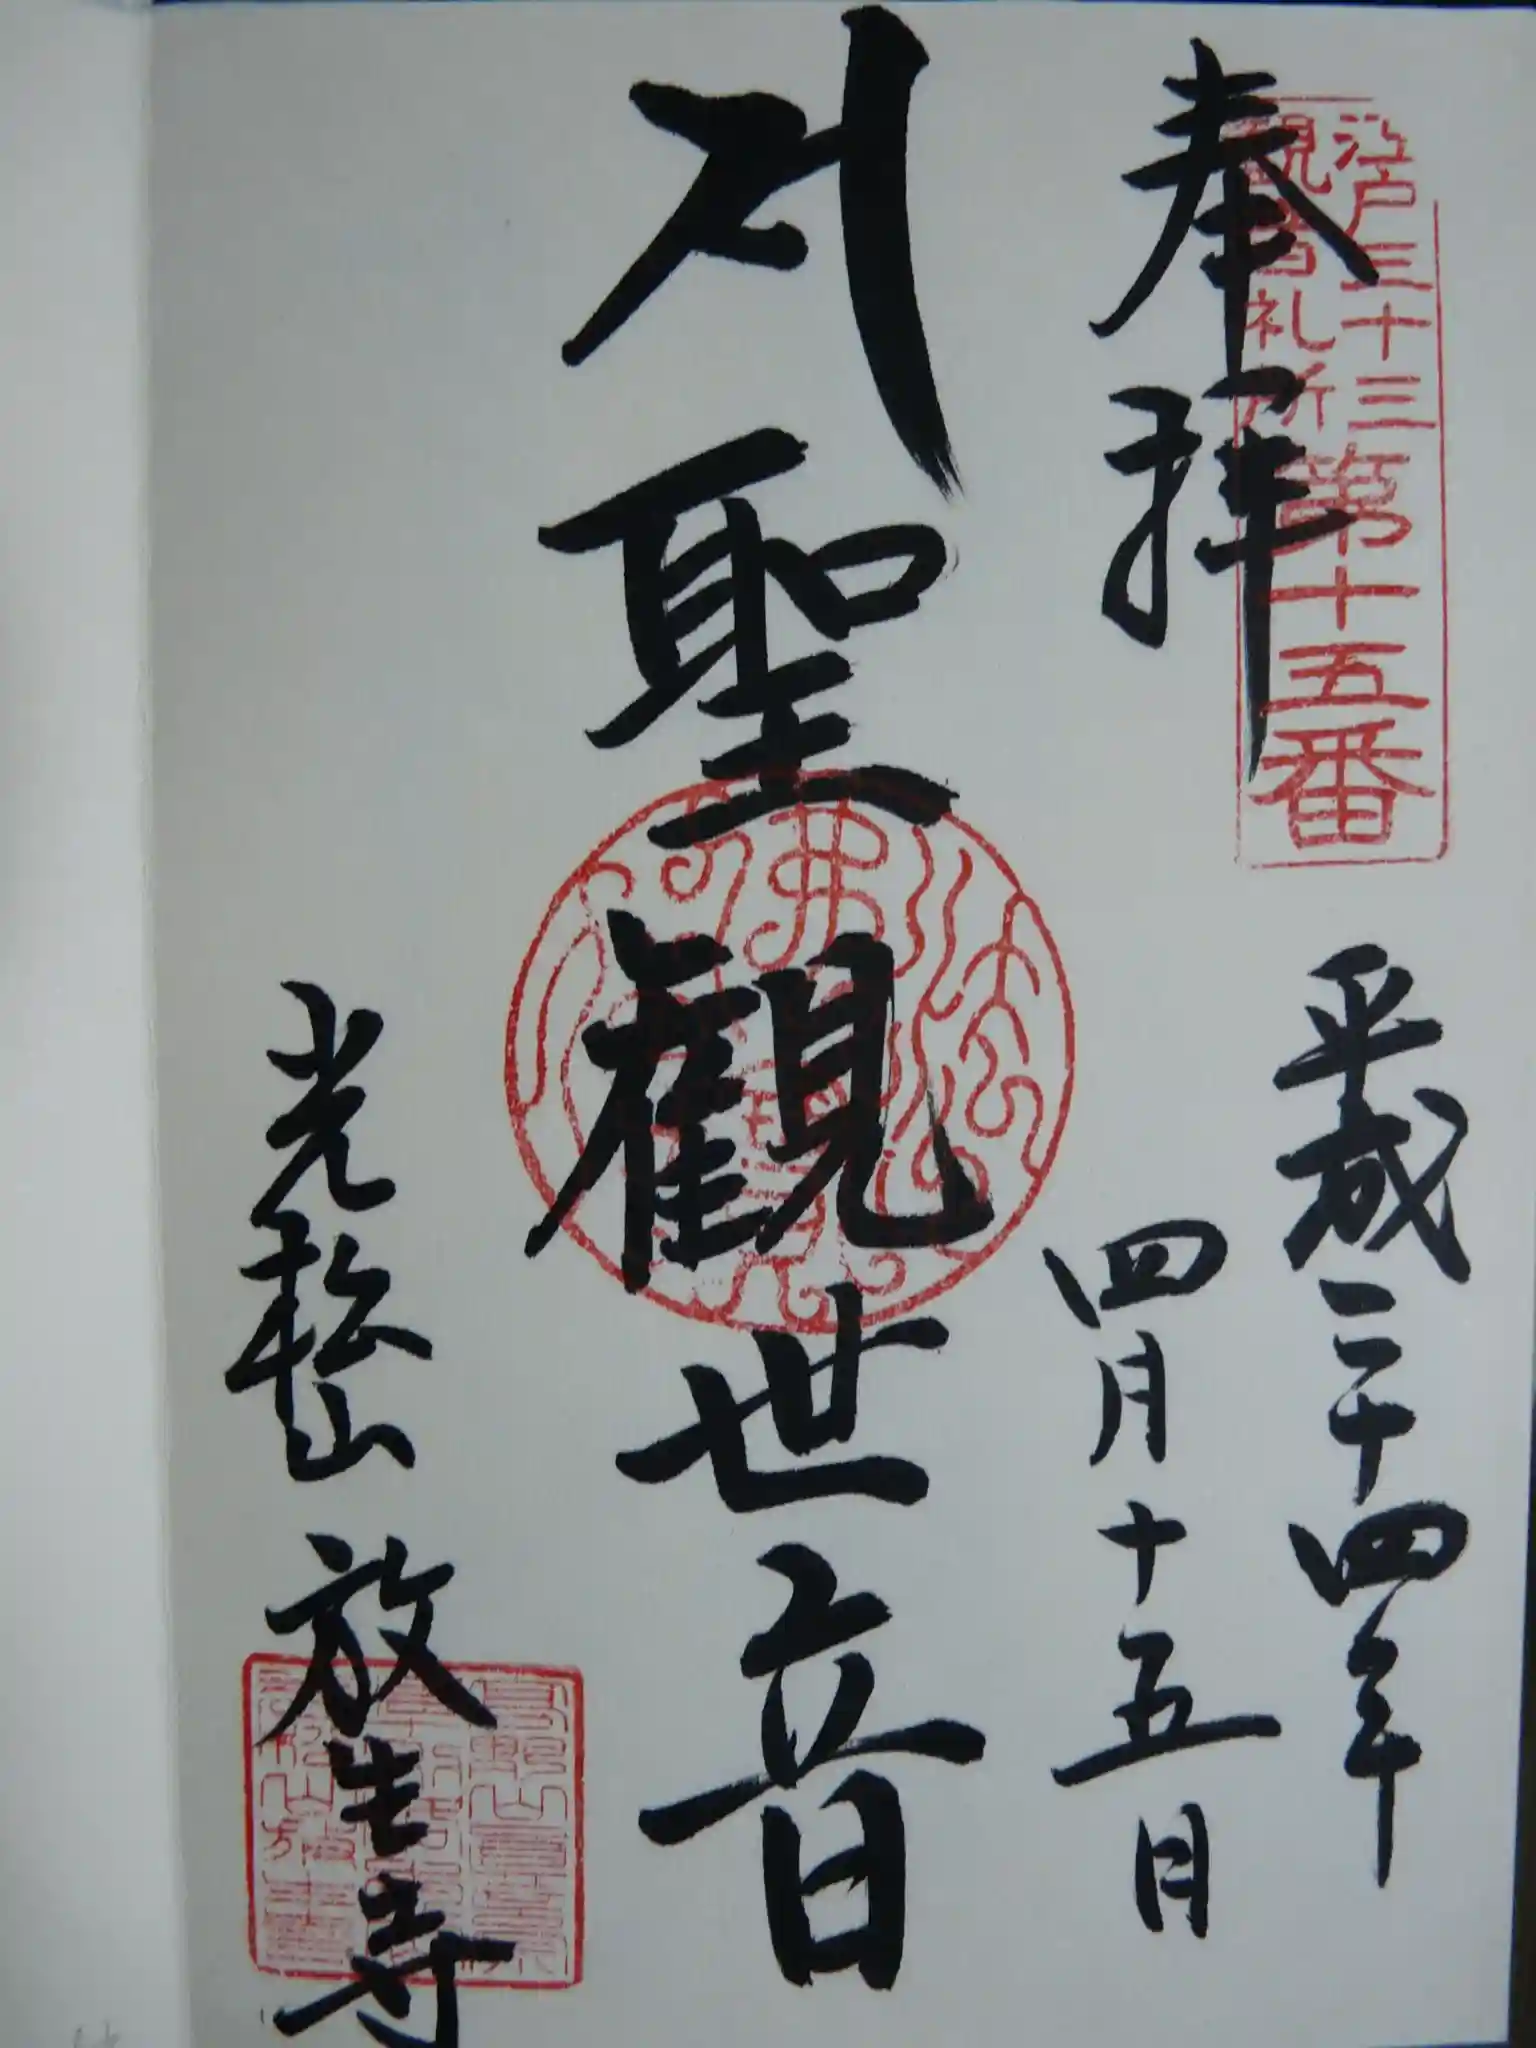 奉拝
江戸三十三
観音札所
第十五番
平成二十四年
四月十五日
聖觀世音
光松山
放生寺